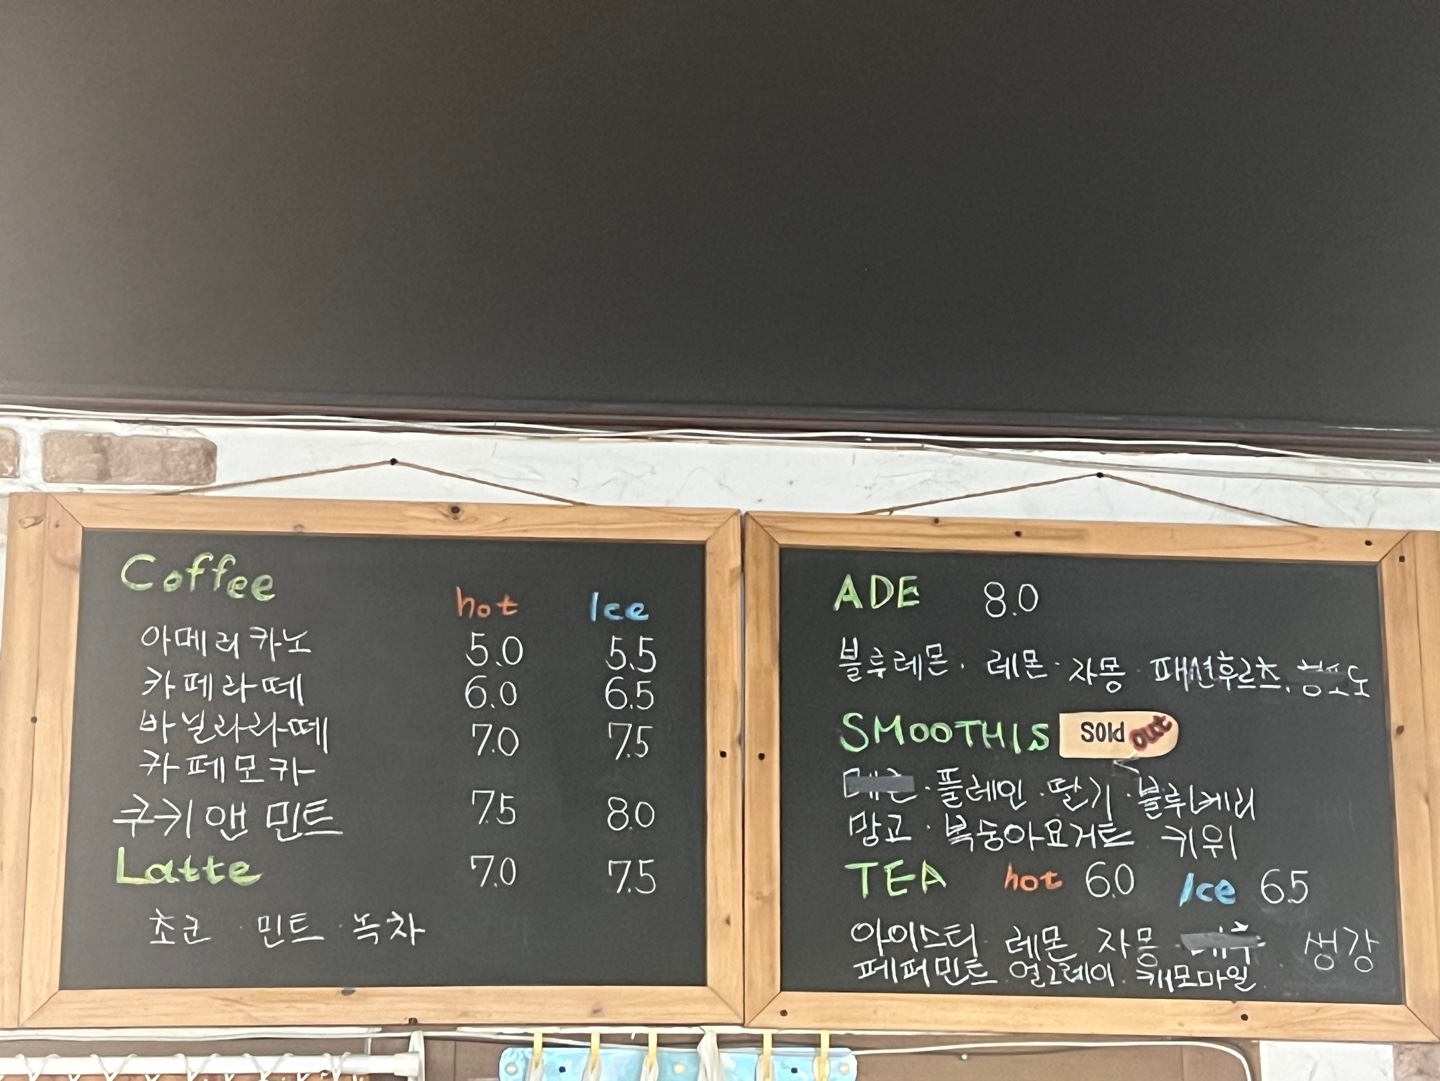 Coffee
hot Ice
아메리카노 5.0 5.5
카페라떼 6.0 6.5
바닐라라떼 7.0 7.5
카페모카
쿠키앤 민트 7.5 8.0
Latte 7.0 7.5
초코 · 민트 · 녹차
ADE 8.0
블루레몬 · 레몬 · 자몽 · 패션후르츠,
SMOOTHIS Sold out
· 플레인 · 딸기 · 블루베리
망고 · 복숭아요거트 키위
TEA hot 6.0 Ice 6.5
아이스티 레몬 자몽 생강
페퍼민트 얼그레이 · 캐모마일